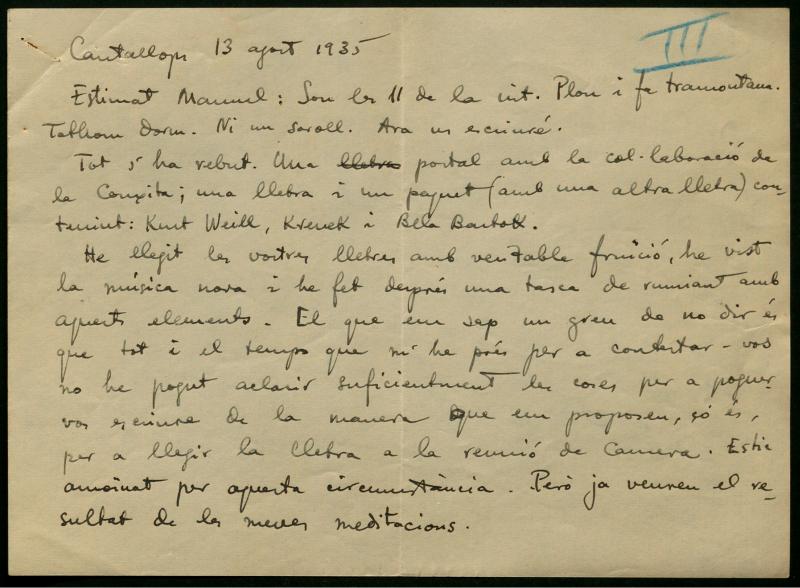 Cantallops 13 agost 1935
III
Estimat Manuel: Son les 11 de la nit. Plou i fa tramontana.
Tothom dorm. Ni un soroll. Ara us escriuré.
Tot s'ha rebut. Una lletra postal amb la col·laboració de
la Conxita; una lletra i un paquet (amb una altra lletra) con-
tenint: Kurt Weill, Krenek i Bela Bartok.
He llegit les vostres lletres amb veritable fruició, he vist
la música nova i he fet després una tasca de rumiant amb
aquests elements. El que em sap un greu de no dir és
que tot i el temps que m'he près per a contestar-vos
no he pogut aclarir suficientment les coses per a poguer-
vos escriure de la manera que em proposeu, ço és,
per a llegir la lletra a la reunió de Camera. Estic
amoinat per aquesta circumstància. Però ja veureu el re-
sultat de les meves meditacions.